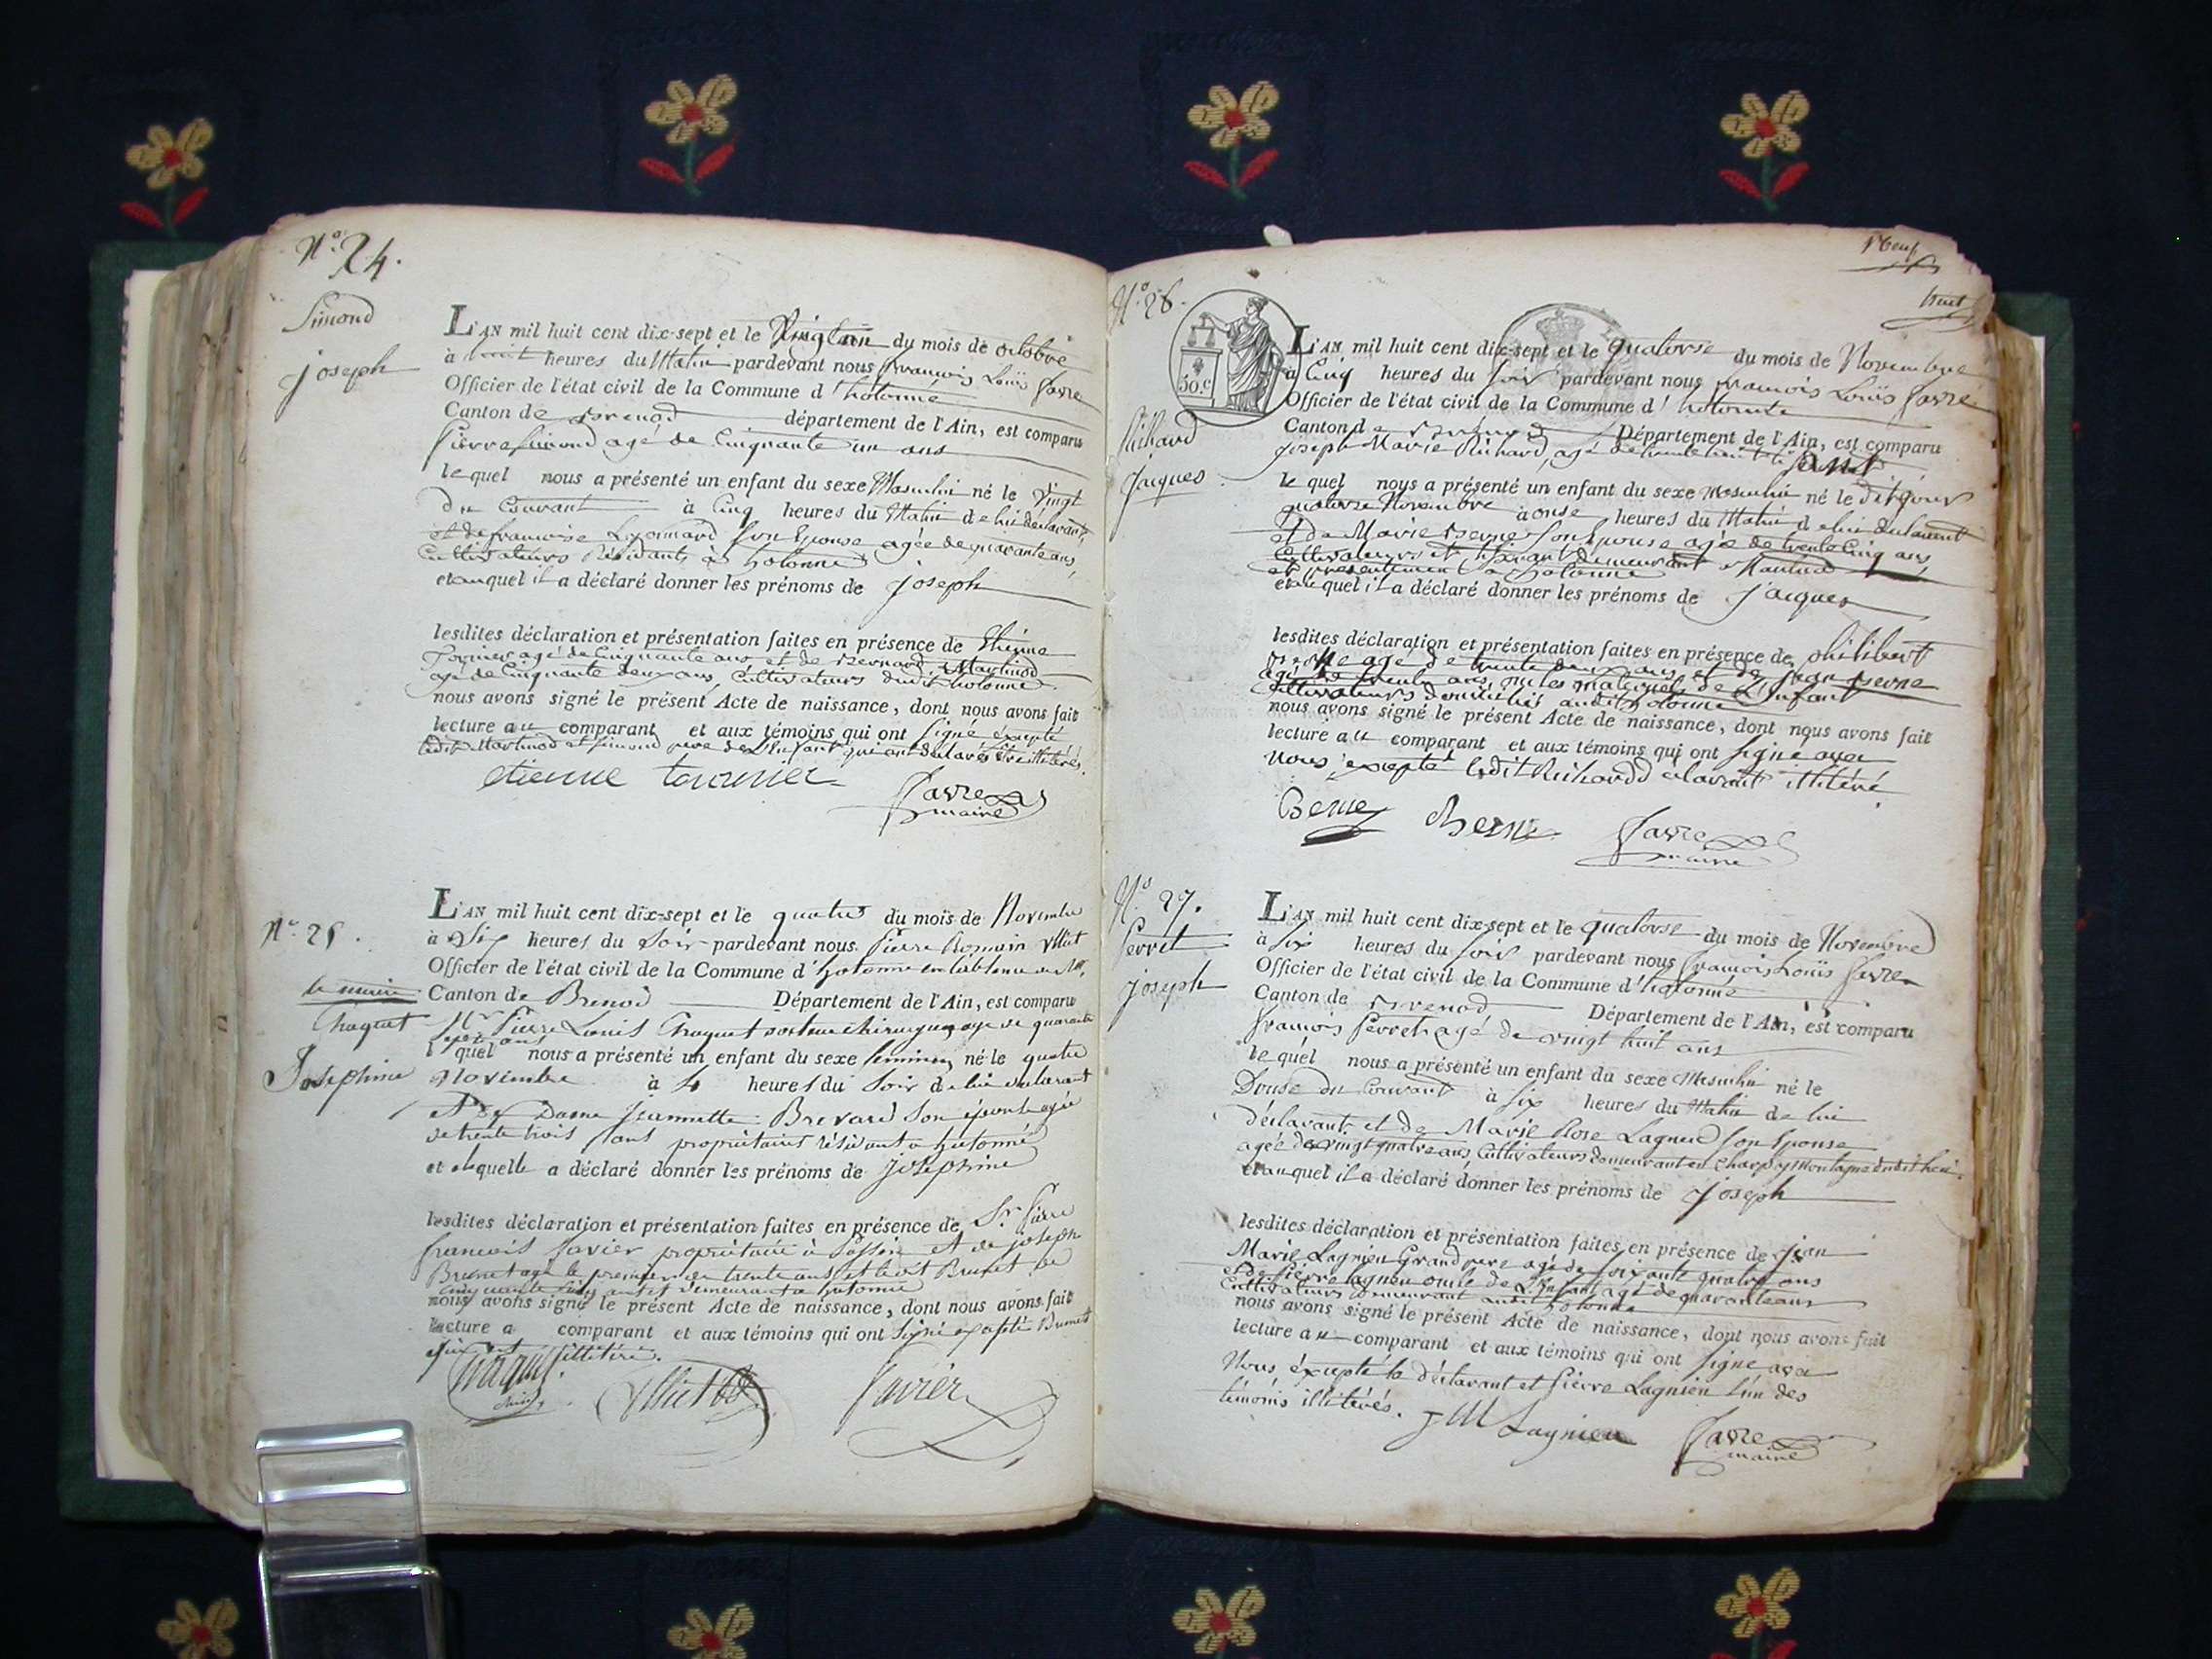 N.° 24.
Simond
joseph
L'AN mil huit cent dix-sept et le Vingt un du mois de octobre
à huit heures du Matin pardevant nous françois Loüis favre
Officier de l'état civil de la Commune d'hotonne
Canton de Brenod département de l'Ain, est comparu
Pierre Simond agé de Cinquante un ans
lequel nous a présenté un enfant du sexe Masculin né le Vingt
du Courant à Cinq heures du Matin de lui déclarant,
et de françoise Lyonnard son Epouse agée de quarante ans,
Cultivateurs Résidants à hotonne
et auquel il a déclaré donner les prénoms de joseph
lesdites déclaration et présentation faites en présence de Etienne
agé de Cinquante ans, et de Bernard Martinod
agé de Cinquante deux ans, Cultivateurs dudit hotonne
nous avons signé le présent Acte de naissance, dont nous avons fait
lecture au comparant et aux témoins qui ont signé éxcepté
ledit Martinod et Simond pere de L'Enfant qui ont déclarés être illitérés.
etienne tournier
favre
maire
N.° 25.
le maire
Chaquet
Josephine
L'AN mil huit cent dix-sept et le quatre du mois de Novembre
à Six heures du Soir pardevant nous Pierre Romain
Officier de l'état civil de la Commune d'hotonne en l'absence de Mr.
Canton de Brenod Département de l'Ain, est comparu
Mr Pierre Louis Chaquet docteur chirurgien agé de quarante
sept ans
l quel nous a présenté un enfant du sexe feminin né le quatre
Novembre à 4 heures du Soir de lui declarant
et De Dame Jeannette Brevard son épouse agée
de trente trois ans propriétaires résidants a hotonne
et alaquelle a déclaré donner les prénoms de josephine
lesdites déclaration et présentation faites en présence de Sr. Pierre
francois Savier propriétaire à et de joseph
Brunet agé le premier de trente ans et ledit Brunet de
cinquante ans et demeurant a hotonne
nous avons signé le présent Acte de naissance, dont nous avons fait
lecture a comparant et aux témoins qui ont Signé excepté Brunet
illitéré.
Chaquet
Savier
Neuf
huit
N.° 26.
50.c
Richard
Jacques
L'AN mil huit cent dix-sept et le quatorse du mois de Novembre
à Cinq heures du soir pardevant nous françois Loüis favre
Officier de l'état civil de la Commune d'hotonne
Canton de Brenod Département de l'Ain, est comparu
joseph Marie Richard, agé de trente ans
le quel nous a présenté un enfant du sexe Masculin né le dit jour
quatorse Novembre à onse heures du Matin de lui déclarant
et de Marie Berne son Epouse agée de trente Cinq ans,
Cultivateurs et demeurant
et présentement a hotonne
et auquel il a déclaré donner les prénoms de jacques
lesdites déclaration et présentation faites en présence de philibert
Berne agé de trente deux ans et de jean Berne
agé de trente ans, oncles maternels de L'Enfant
Cultivateurs domiciliés audit hotonne
nous avons signé le présent Acte de naissance, dont nous avons fait
lecture au comparant et aux témoins qui ont signe avec
nous, éxcepté ledit Richard déclarant illitéré.
Berne Berne favre
maire
N.° 27.
Perret
joseph
L'AN mil huit cent dix-sept et le quatorse du mois de Novembre
à six heures du soir pardevant nous françois Loüis favre
Officier de l'état civil de la Commune d'hotonne
Canton de Brenod Département de l'Ain, est comparu
françois Perret agé de vingt huit ans
le quel nous a présenté un enfant du sexe Masculin né le
Douse du Courant à six heures du Matin de lui
déclarant et de Marie Rose Lagnieu son Epouse
agée de vingt quatre ans, Cultivateurs demeurant en montagne dudit lieu.
et auquel il a déclaré donner les prénoms de joseph
lesdites déclaration et présentation faites en présence de jean
Marie Lagnieu Grand pere agé de soixante quatre ans
et de Pierre Lagnieu oncle de L'Enfant agé de quarante ans
Cultivateurs demeurant audit hotonne
nous avons signé le présent Acte de naissance, dont nous avons fait
lecture au comparant et aux témoins qui ont signé avec
Nous éxcepté le Déclarant et Pierre Lagnieu l'un des
témoins illitérés.
JM Lagnieu favre
maire